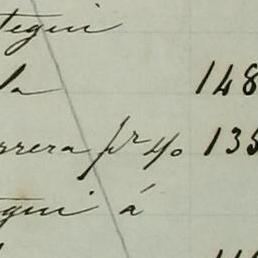 tegui
la 148
rrera pr y/o 135
gui á